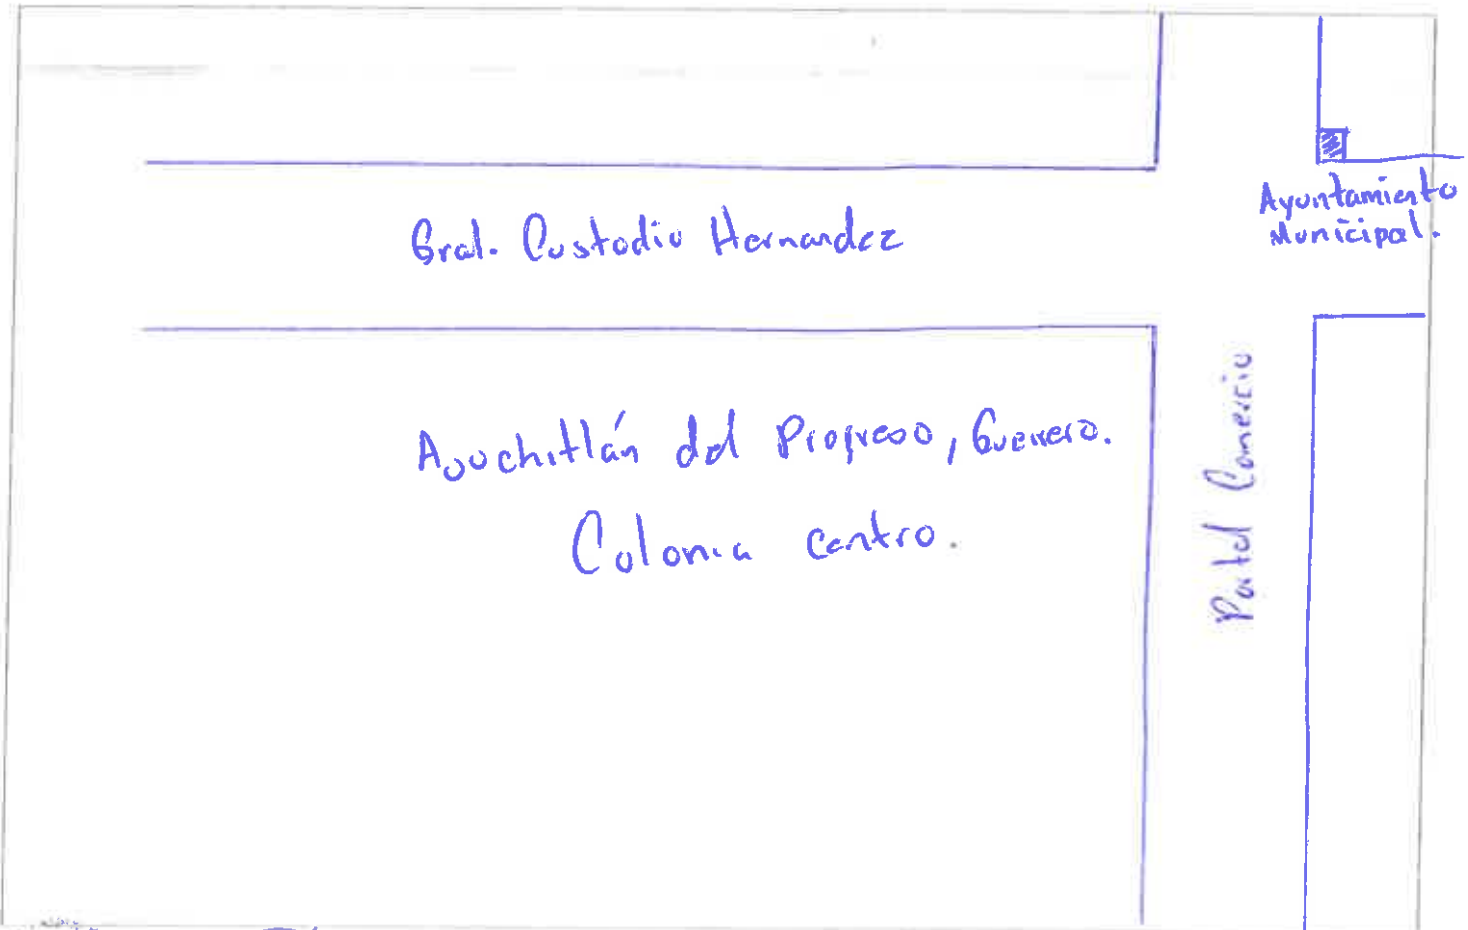 Gral. Custodio Hernandez
Ayuntamiento
Municipal.
Ajuchitlán del Progreso, Guerrero.
Colonia centro.
Portal Comercio